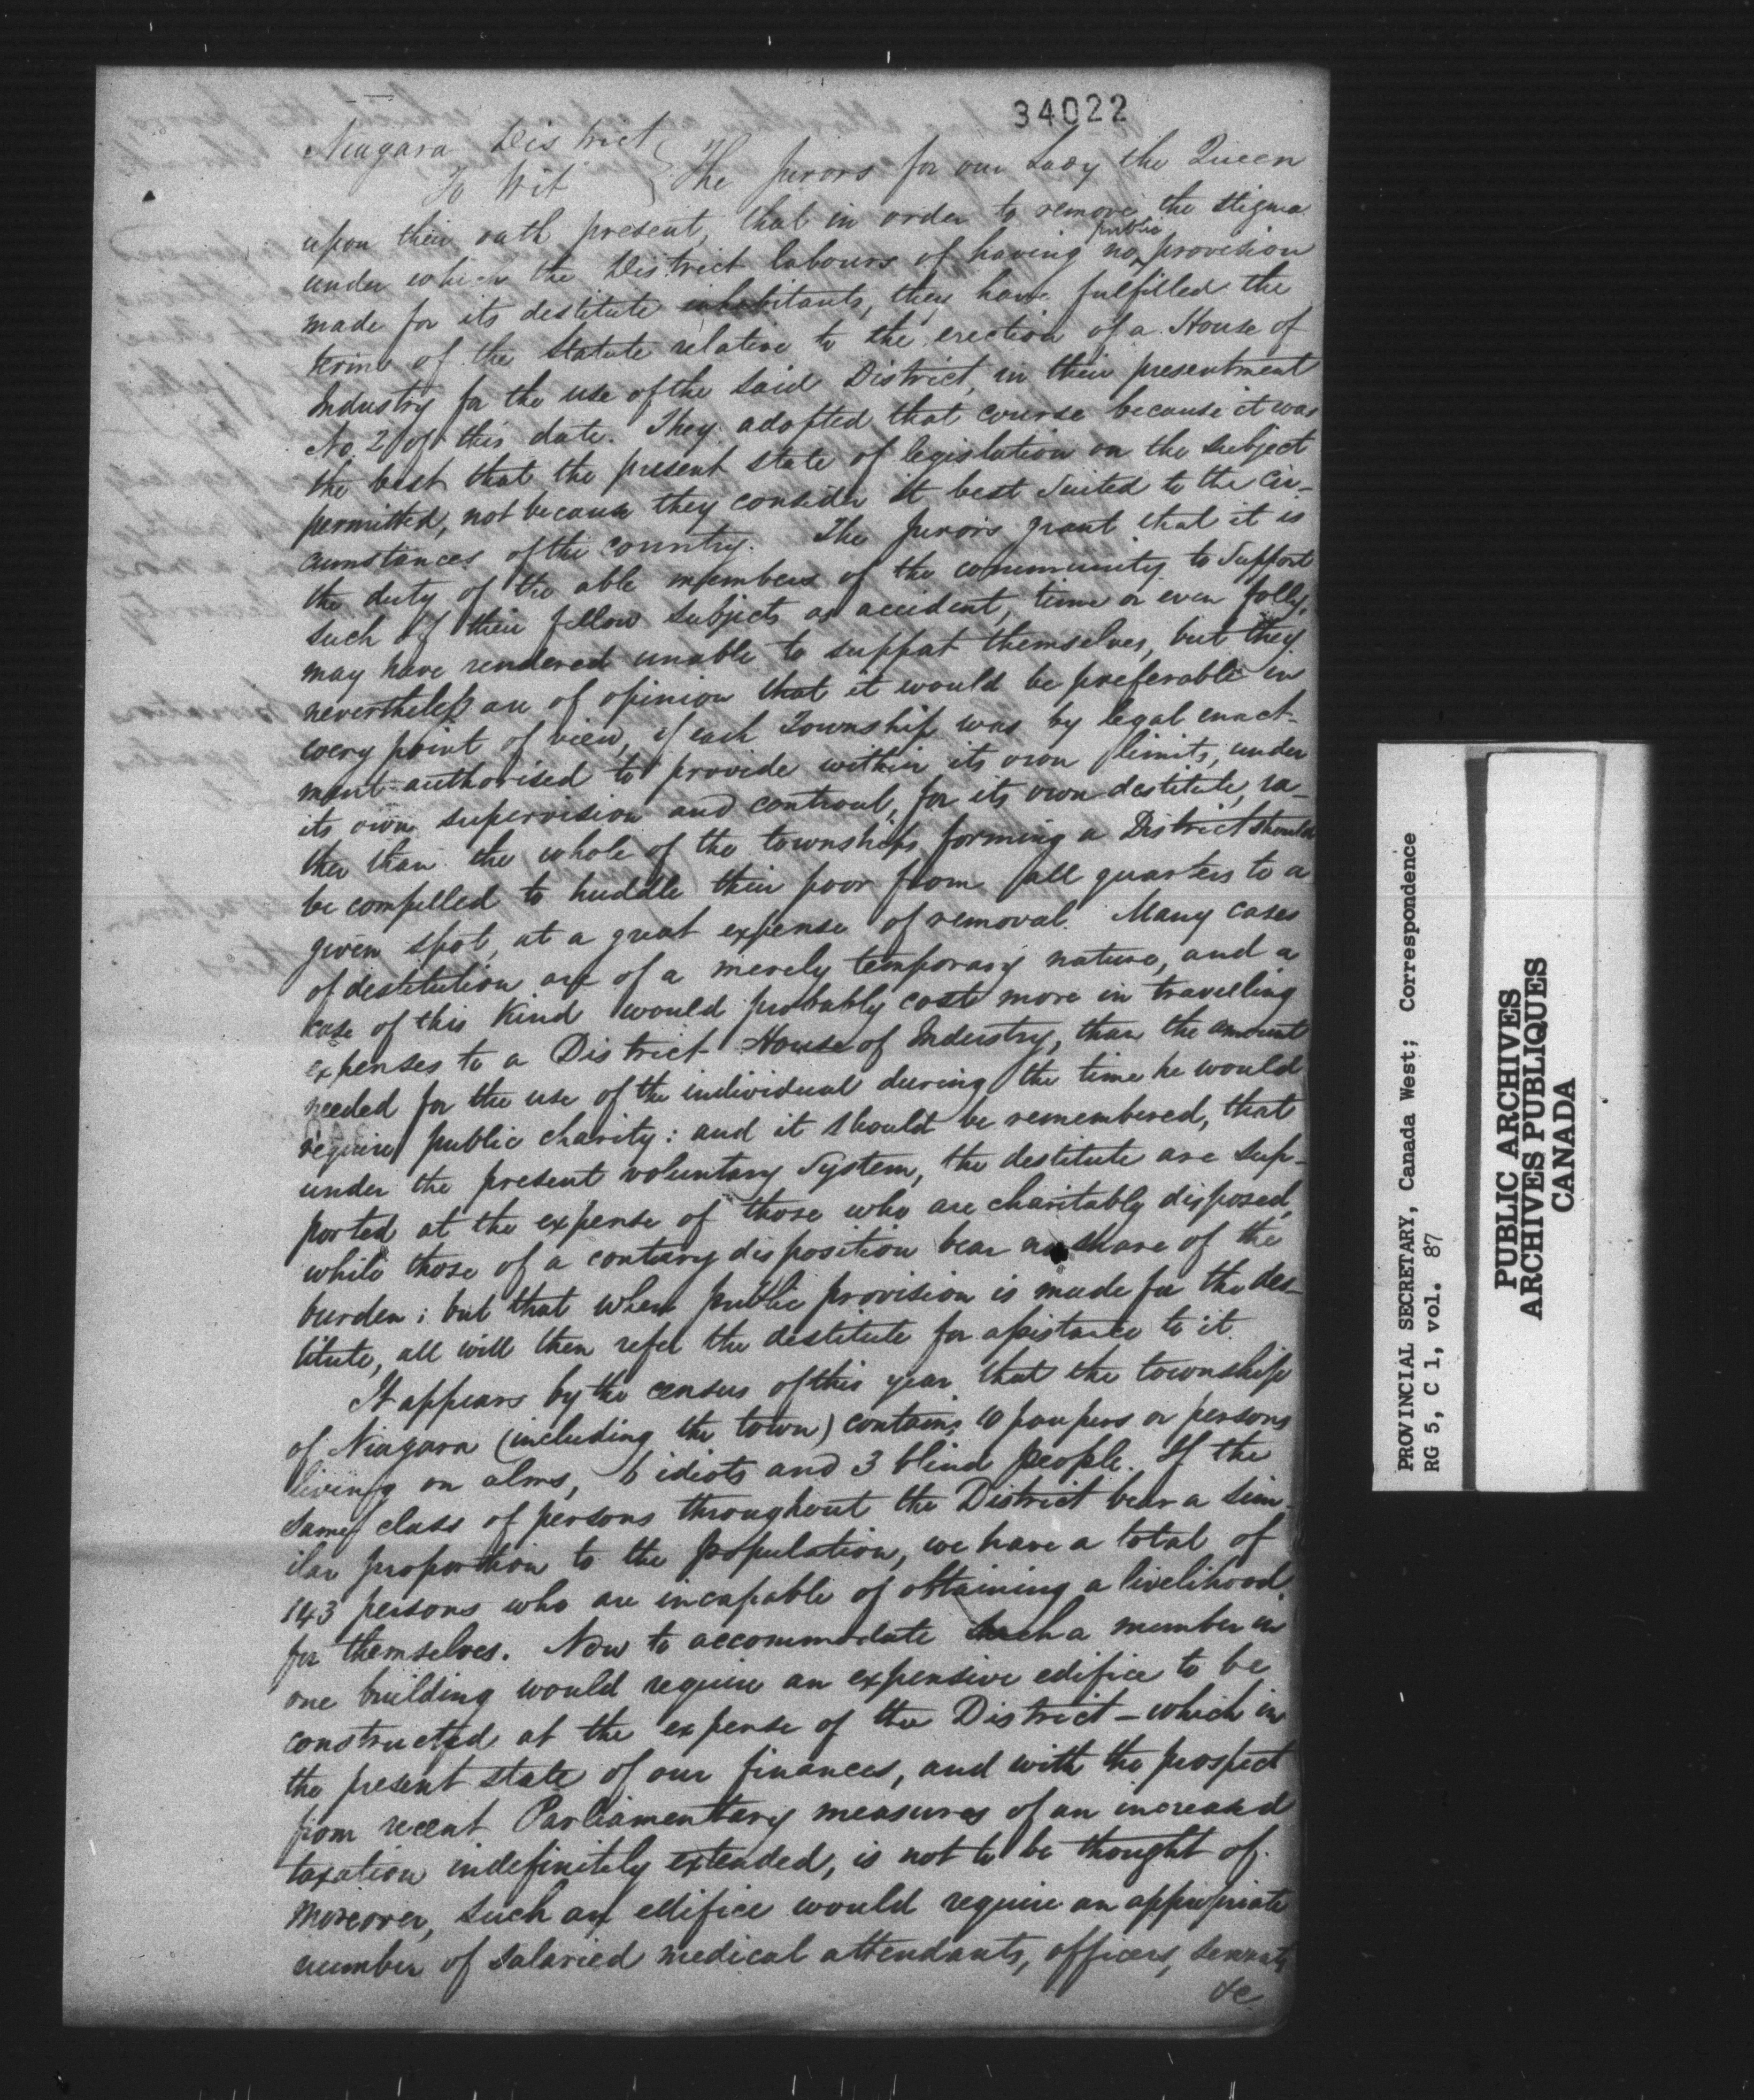 34022
Niagara District
To Wit } The jurors for our Lady the Queen
upon their oath present, that in order to remove the stigma
under which the District labours of having no public provision
made for its destitute inhabitants, they have fulfilled the
terms of the Statute relative to the erection of a House of
Industry for the use of the said District, in their presentment
No. 2 of this date. They adopted that course because it was
the best that the present state of legislation on the subject
permitted, not because they consider it best suited to the cir-
cumstances of the country. The jurors grant that it is
the duty of the able members of the community to support
such of their fellow subjects as accident, time or even folly,
may have rendered unable to support themselves, but they
nevertheless are of opinion that it would be preferable in
every point of view, if each Township was by legal enact-
ment authorised to provide within its own limits, under
its own supervision and controul, for its own destitute, ra-
ther than the whole of the townships forming a District should
be compelled to huddle their poor from all quarters to a
given spot, at a great expense of removal. Many cases
of destitution are of a merely temporary nature, and a
case of this kind would probably cost more in travelling
expenses to a District House of Industry, than the amount
needed for the use of the individual during the time he would
require public charity: and it should be remembered, that
under the present voluntary System, the destitute are sup-
ported at the expense of those who are charitably disposed,
while those of a contrary disposition bear no share of the
burden; but that when public provision is made for the des-
titute, all will then refer the destitute for assistance to it.
It appears by the census of this year that the township
of Niagara (including the town) contains 10 paupers or persons
living on alms, 6 idiots and 3 blind people. If the
same class of persons throughout the District bear a sim-
ilar proportion to the population, we have a total of
143 persons who are incapable of obtaining a livelihood
for themselves. Now to accommodate such a number in
one building would require an expensive edifice to be
constructed at the expense of the District – which in
the present state of our finances, and with the prospect
from recent Parliamentary measures of an increased
taxation indefinitely extended, is not to be thought of.
Moreover, such an edifice would require an appropriate
number of salaried medical attendants, officers, servants
&c
PROVINCIAL SECRETARY, Canada West; Correspondence
RG 5, C 1, vol. 87
PUBLIC ARCHIVES
ARCHIVES PUBLIQUES
CANADA